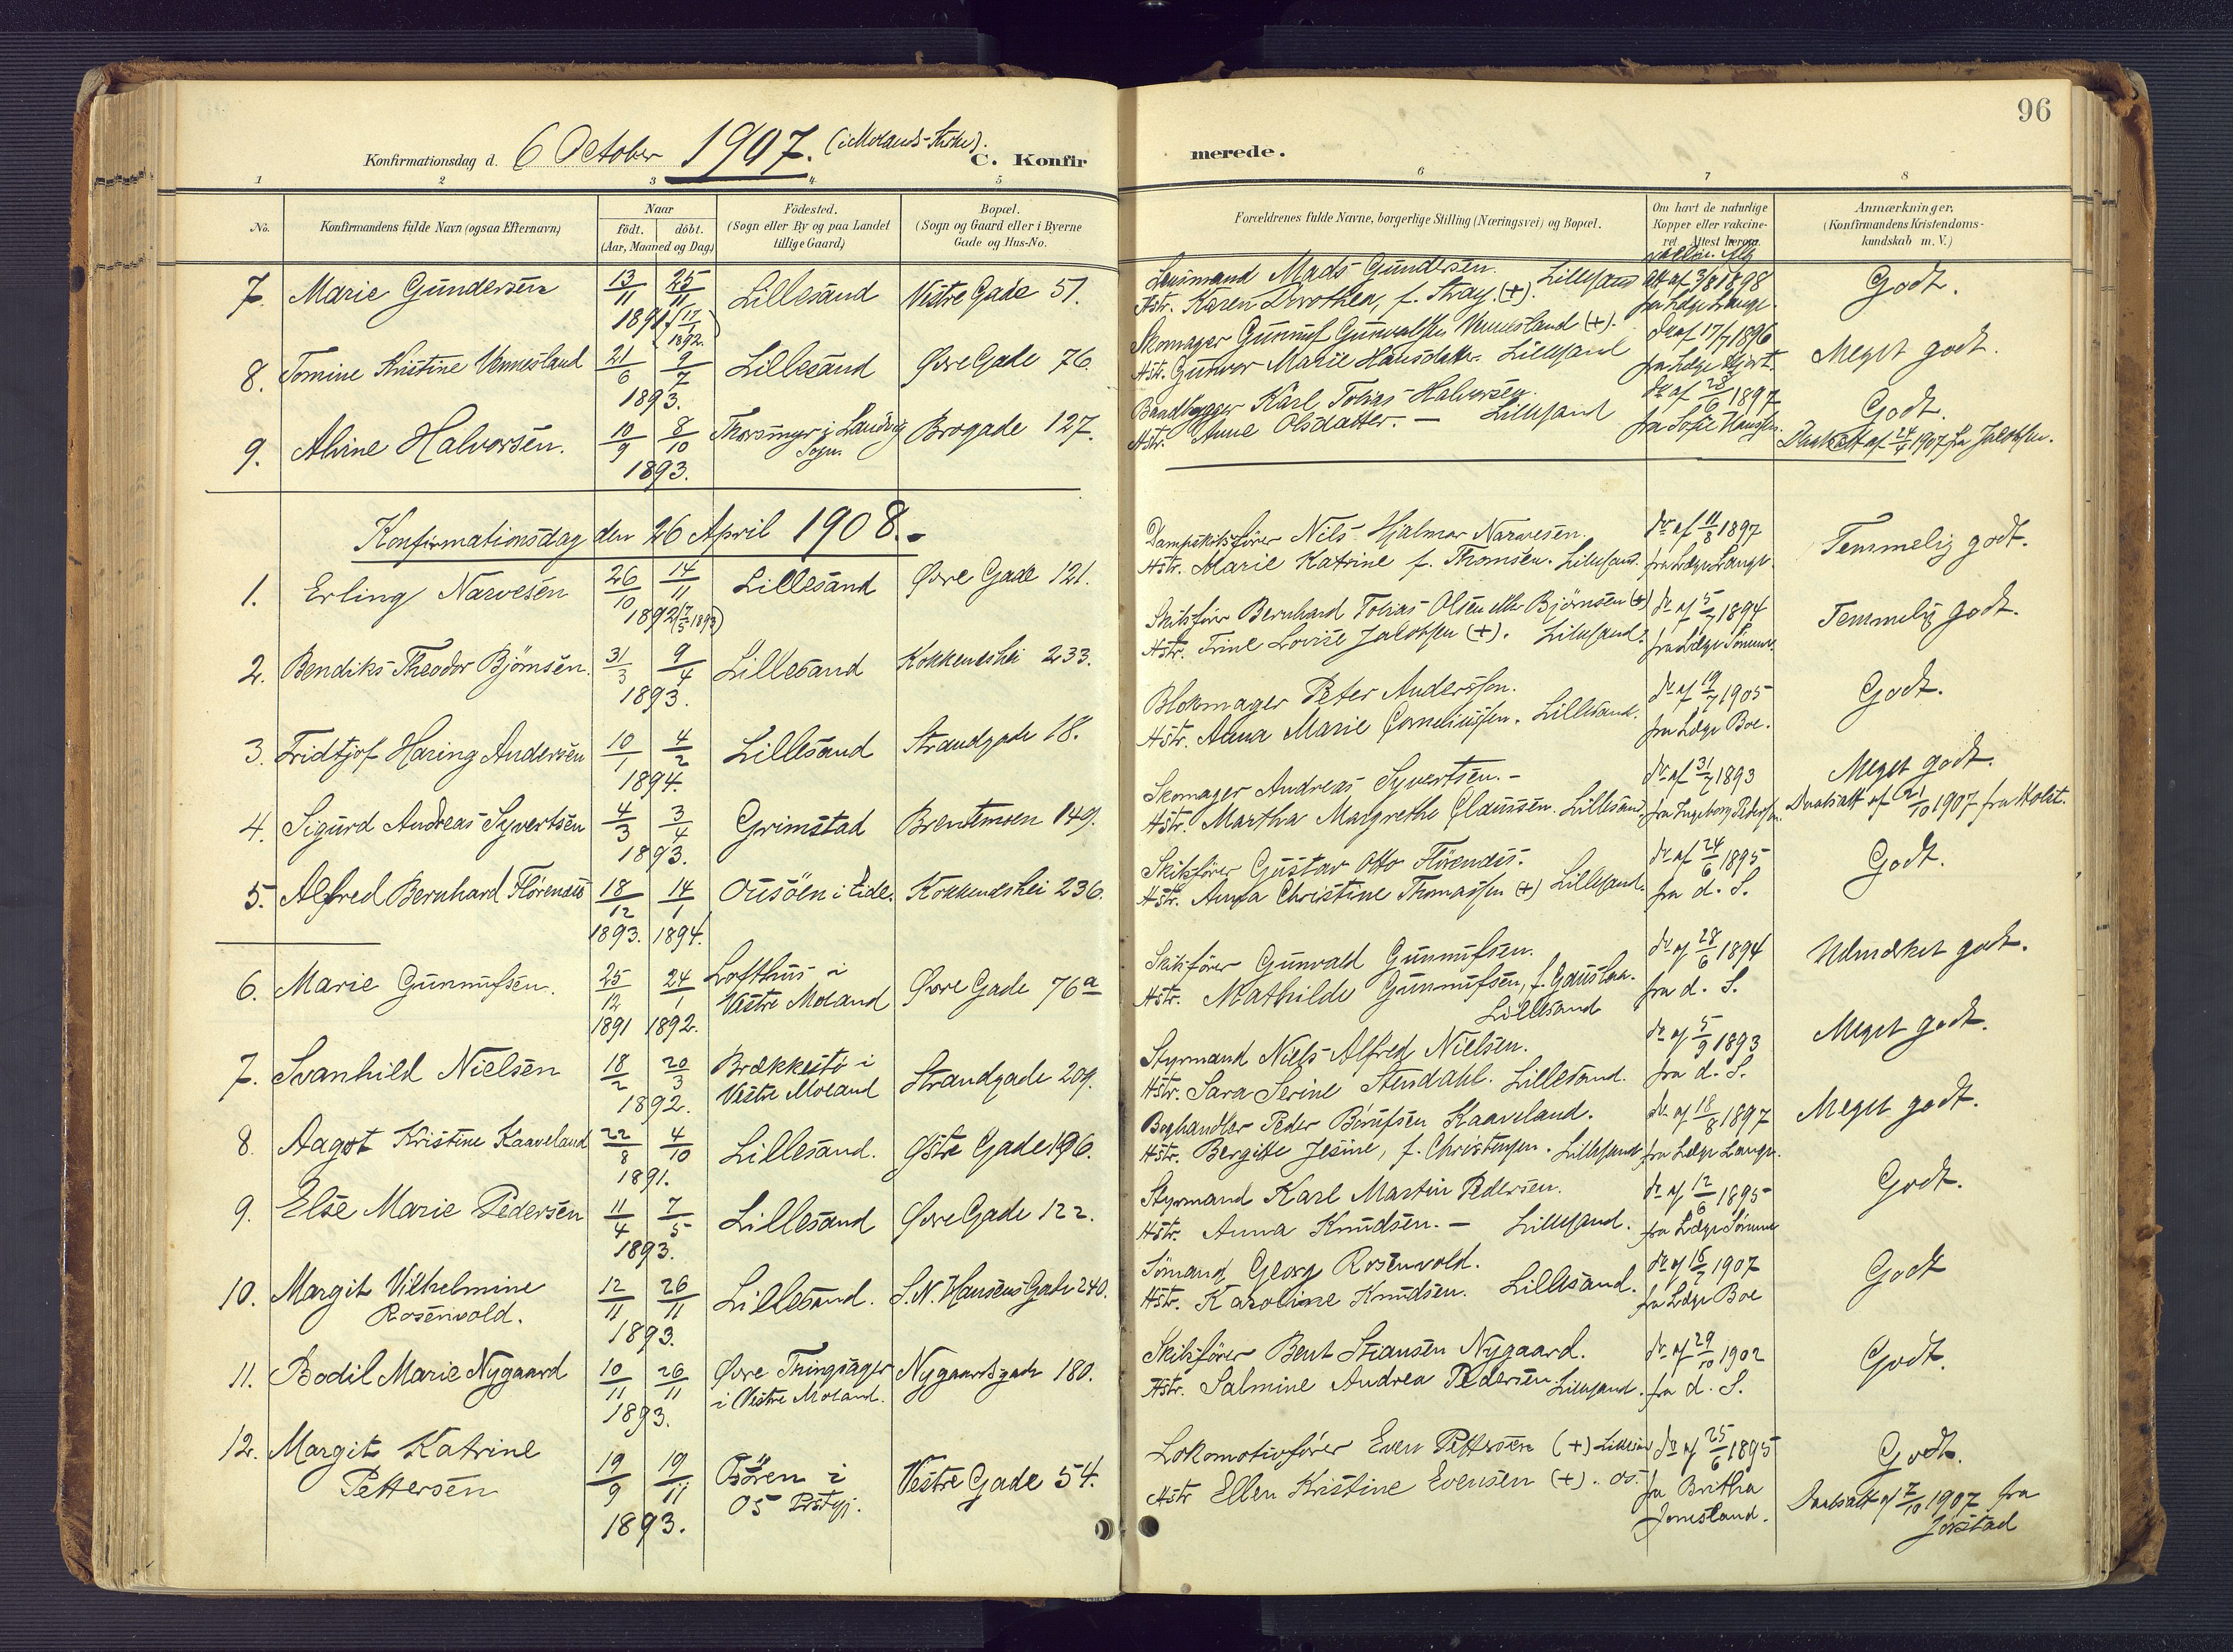 96
Konfirmationsdag d. 6 October 1907. (i Molands Kirke).
C. Konfir merede.
1 2 3 4 5 6 7 8
No.
Konfirmandens fulde Navn (ogsaa Efternavn)
Naar
födt. döbt.
(Aar, Maaned og Dag)
Födested.
(Sogn eller By og paa Landet
tillige Gaard)
Bopæl.
(Sogn og Gaard eller i Byerne
Gade og Hus-No.
Forældrenes fulde Navne, borgerlige Stilling (Næringsvei) og Bopæl.
Om havt de naturlige
Kopper eller vakcine-
ret. Attest herom.
Anmærkninger,
(Konfirmandens Kristendoms-
kundskab m. V.)
7. Marie Gundersen 13/11 25/11 1891 (17/1 1892) Lillesand Vestre Gade 51.
Mads Gundersen.
Hstr. Karen Dorothea, f. Stray (+). Lillesand
Att. af 3/8 1898
fra Læge Lange.
Godt.
8. Tomine Kristine Vennesland 21/6 9/7 1893. Lillesand Øvre Gade 76.
Skomager Gunnuf Gunvaldsen Vennesland (+).
Hstr. Gunvor Marie Hansdatter. Lillesand
Do af 17/7 1896
fra Læge Hjort.
Meget godt.
9. Alvine Halvorsen. 10/9 8/10 1893. Thorsmyr i Landvig
Sogn
Brogade 127.
Baadbygger Karl Tobias Halvorsen.
Hstr. Anne Olsdatter. — Lillesand
Do af 28/6 1897
fra Sofie Hansen.
Godt.
Daabsatt af 24/9 1907 fra Jakobsen.
Konfirmationsdag den 26 April 1908.
1. Erling Narvesen 26/10 14/11 1892 (7/5 1893) Lillesand Øvre Gade 121.
Dampskibsfører Nils Hjalmar Narvesen.
Hstr. Marie Katrine f. Thomsen. Lillesand.
Do af 11/8 1897
fra Læge Lange.
Temmelig godt.
2. Bendiks Theodor Björnsen. 31/3 9/4 1893. Lillesand Kokkeneshei 233.
Skibsfører Bernhard Tobias Olsen eller Björnsen (+)
Hstr. Trine Lovise Jakobsen (+). Lillesand.
Do af 5/7 1894
fra Læge Sömme.
Temmelig godt.
3. Fridtjof Haring Andersen 10/1 4/2 1894. Lillesand Strandgade 18.
Blokmager Peter Anderssen.
Hstr. Anna Marie Corneliussen. Lillesand.
Do af 19/7 1905
fra Læge Boe.
Godt.
4. Sigurd Andreas Syvertsen 4/3 3/4 1893. Grimstad Brentemoen 149.
Skomager Andreas Syvertsen. —
Hstr. Martha Margrethe Claussen. Lillesand.
Do af 31/7 1893
fra Ingeborg Pedersen.
Meget godt.
Daabsatt af 21/10 1907 fra Kolst.
5. Alfred Bernhard Flörendes 18/12 1893. 14/1 1894. Ousöen i Eide. Kokkeneshei 236.
Skibsfører Gustav Otto Flörendes.
Hstr. Anna Christine Thomassen (+) Lillesand.
Do af 24/6 1895
fra d. S.
Godt.
6. Marie Gunnufsen. 25/12 1891 24/1 1892. Lofthus i
Vestre Moland
Øvre Gade 76a
Skibsfører Gunvald Gunnufsen.
Hstr. Mathilde Gunnufsen, f. Gauslaa.
Lillesand
Do af 28/6 1894
fra d. S.
Udmærket godt.
7. Svanhild Nielsen 18/2 20/3 1892. Brækkestö i
Vestre Moland
Strandgade 209.
Styrmand Niels Alfred Nielsen.
Hstr. Sara Serine Stendahl. Lillesand.
Do af 5/9 1893
fra d. S.
Meget godt.
8. Aagot Kristine Kaaveland 22/8 4/10 1891. Lillesand. Østre Gade 196.
Boghandler Peder Berntsen Kaaveland.
Hstr. Bergitte Jesine, f. Christensen. Lillesand
Do af 18/8 1897
fra Læge Lange.
Meget godt.
9. Else Marie Pedersen 11/4 7/5 1893. Lillesand Øvre Gade 122.
Styrmand Karl Martin Pedersen.
Hstr. Anna Knudsen. — Lillesand.
Do af 12/6 1895
fra Læge Sömme
Godt.
10. Margit Vilhelmine
Rosenvold.
12/11 26/11 1893. Lillesand. S. N. Hansens Gade 240.
Sömand Georg Rosenvold.
Hstr. Karoline Knudsen. Lillesand.
Do af 16/7 1907
fra Læge Boe
Godt
11. Bodil Marie Nygaard 10/11 26/11 1893. Øvre Tingsager
i Vestre Moland.
Nygaardsgade 180.
Skibsfører Bent Stiansen Nygaard.
Hstr. Salmine Andrea Pedersen. Lillesand.
Do af 29/10 1902
fra d. S.
Godt.
12. Margit Katrine
Pettersen
19/9 19/11 1893. Bören i
Os Prstgj.
Vestre Gade 54.
Lokomotivfører Even Pettersen (+) Lillesand
Hstr Ellen Kristine Evensen (+). Os.
Do af 25/6 1895
fra Britha
Jonesland.
Godt.
Daabsatt af 7/10 1907 fra
Jørstad